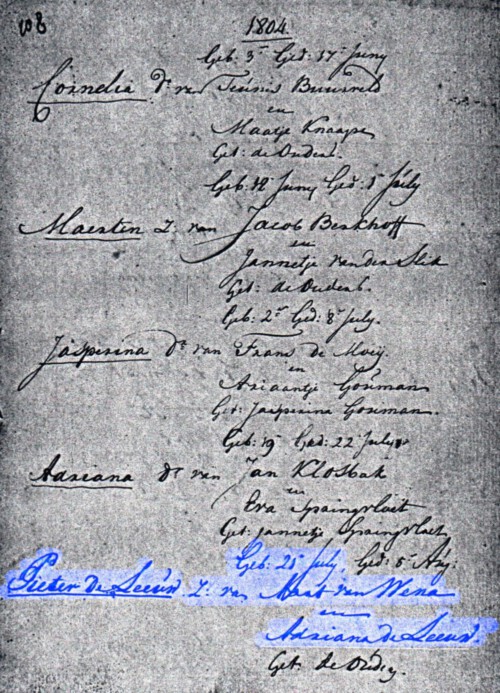 108
1804.
Geb: 3e Ged: 17e Juny
Cornelia Dr van Teunis
en
Maatje Knaape
Get: de Ouders.
Geb: 12e Juny Ged: 1e July
Maerten Z. van Jacob Berkhoff
en
Jannetje van der Slik
Get: de Ouders.
Geb: 2e Ged: 8e July.
Jasperina Dr van Frans de Moeij.
en
Ariaantje Gouman
Get: Jasperina Gouman.
Geb: 19e Ged: 22 July
Adriana Dr van Jan Klosbak
en
Eva Spruingvloet
Get: Jannetje Spruingvloet
Geb: July, Ged: 5e Aug:
Pieter de Leeuw Z: van Maat van Wena
en
Adriana de Leeuw.
Get: de